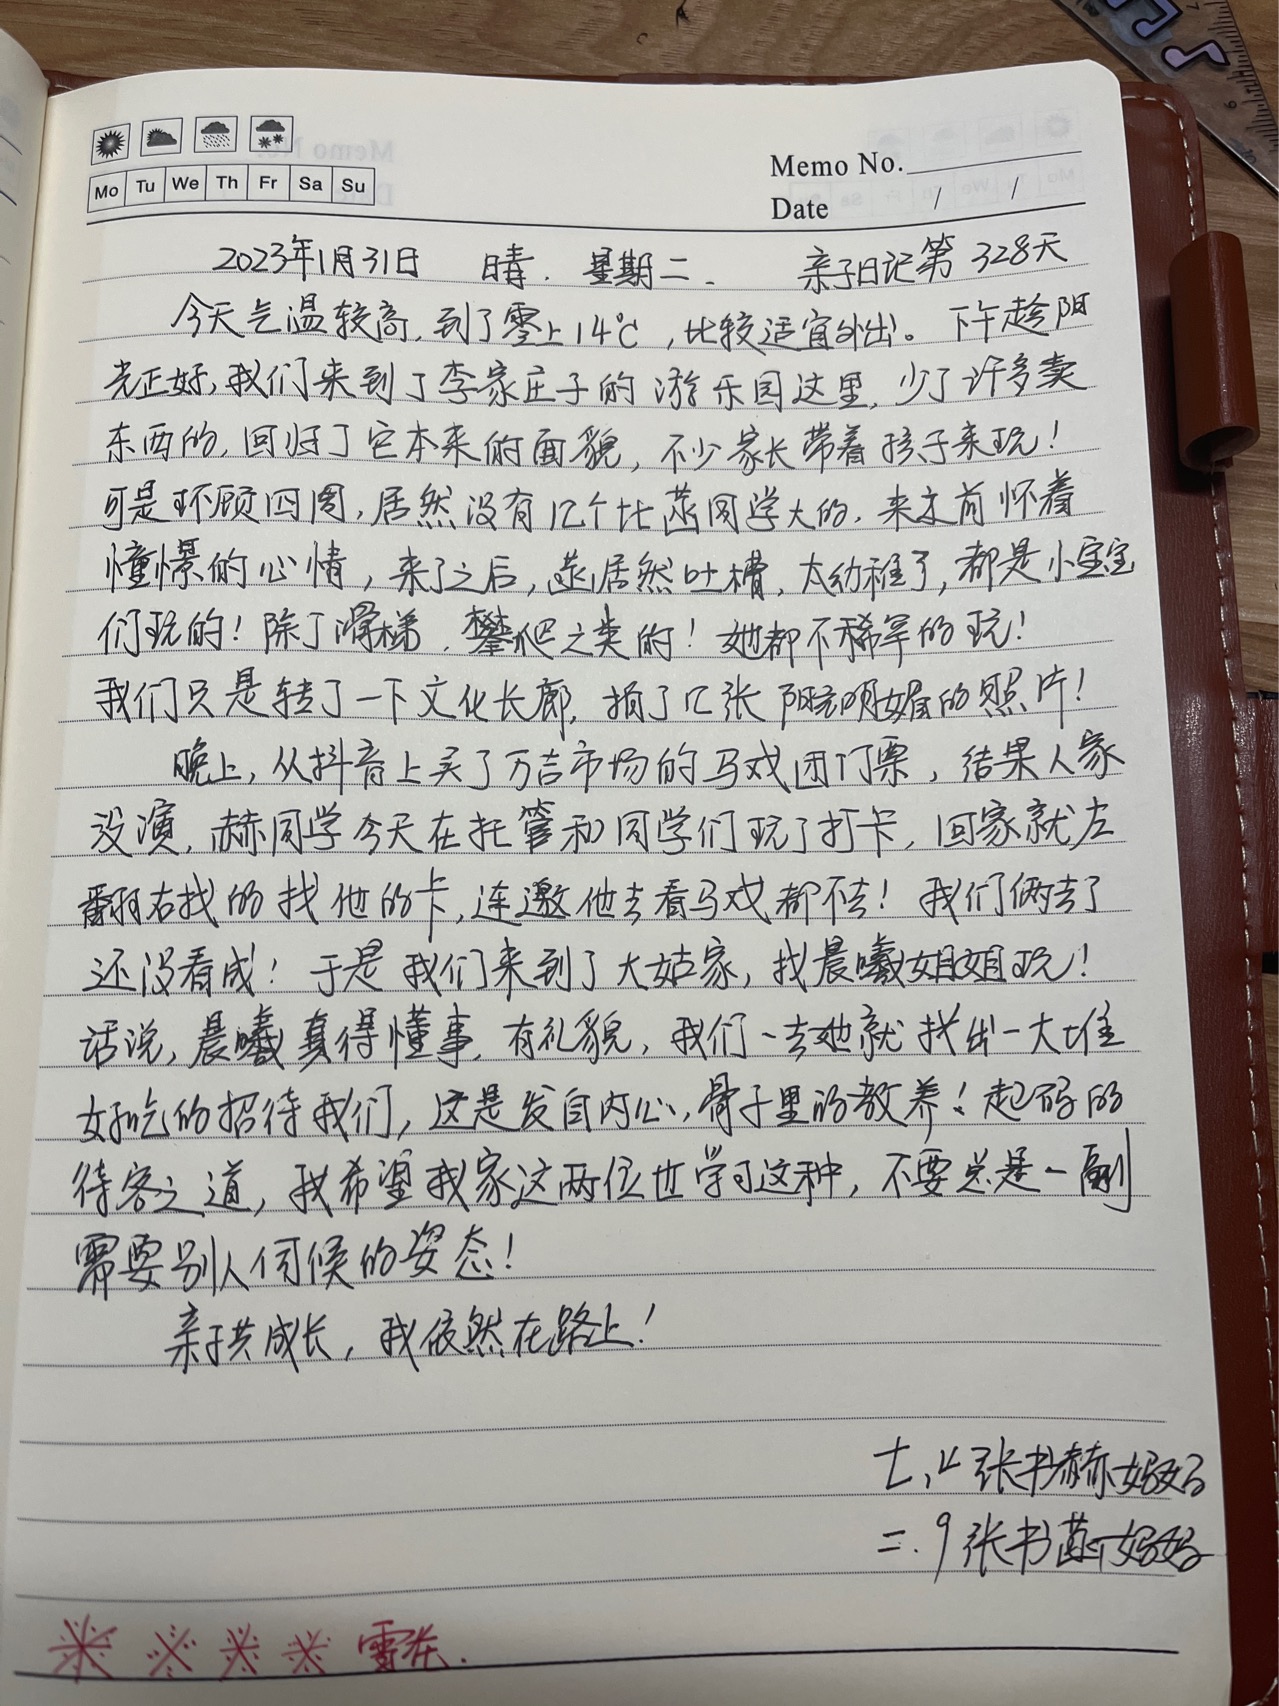 Mo Tu We Th Fr Sa Su
Memo No.
Date / /
2023年1月31日 晴. 星期二. 亲子日记第328天
今天气温较高,到了零上14℃,比较适宜外出。下午趁阳
光正好,我们来到了李家庄子的游乐园这里,少了许多卖
东西的,回归了它本来的面貌,不少家长带着孩子来玩!
可是环顾四周,居然没有几个比菡同学大的,来之前怀着
憧憬的心情,来了之后,菡居然吐槽,太幼稚了,都是小宝宝
们玩的!除了滑梯,攀爬之类的!她都不稀罕的玩!
我们只是转了一下文化长廊,拍了几张阳光明媚的照片!
晚上,从抖音上买了万吉市场的马戏团门票,结果人家
没演,赫同学今天在托管和同学们玩了打卡,回家就左
翻右找的找他的卡,连邀他去看马戏都不去!我们俩去了
还没看成!于是我们来到了大姑家,找晨曦姐姐玩!
话说,晨曦真得懂事,有礼貌,我们一去她就找出一大堆
好吃的招待我们,这是发自内心,骨子里的教养!起码的
待客之道,我希望我家这两位也学习这种,不要总是一副
需要别人伺候的姿态!
亲子共成长,我依然在路上!
七.4张书赫妈妈
二.9张书菡妈妈